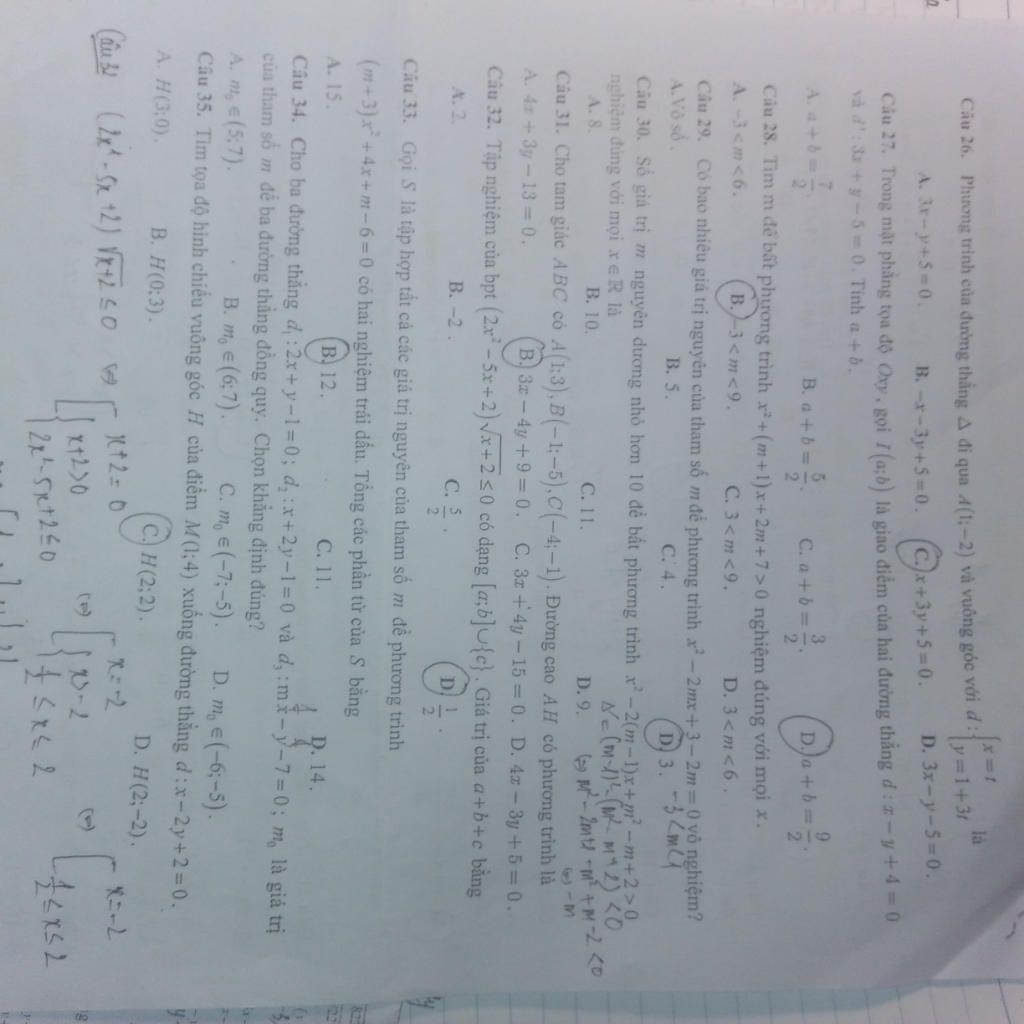 Câu 26. Phương trình của đường thẳng Δ đi qua A(1;−2) và vuông góc với d : { x = t ; y = 1 + 3t là
A. 3x − y + 5 = 0. B. −x − 3y + 5 = 0. C. x + 3y + 5 = 0. D. 3x − y − 5 = 0.
Câu 27. Trong mặt phẳng tọa độ Oxy, gọi I(a;b) là giao điểm của hai đường thẳng d : x − y + 4 = 0
và d' : 3x + y − 5 = 0. Tính a + b.
A. a + b = 7/2. B. a + b = 5/2. C. a + b = 3/2. D. a + b = 9/2.
Câu 28. Tìm m để bất phương trình x² + (m+1)x + 2m + 7 > 0 nghiệm đúng với mọi x.
A. −3 < m < 6. B. −3 < m < 9. C. 3 < m < 9. D. 3 < m < 6.
Câu 29. Có bao nhiêu giá trị nguyên của tham số m để phương trình x² − 2mx + 3 − 2m = 0 vô nghiệm?
A. Vô số. B. 5. C. 4. D. 3. −3 < m < 1
Câu 30. Số giá trị m nguyên dương nhỏ hơn 10 để bất phương trình x² − 2(m−1)x + m² − m + 2 > 0
nghiệm đúng với mọi x ∈ ℝ là
Δ' = (m−1)² − (m² − m + 2) < 0
A. 8. B. 10. C. 11. D. 9.
⇔ m² − 2m + 1 − m² + m − 2 < 0
⇔ −m
Câu 31. Cho tam giác ABC có A(1;3), B(−1;−5), C(−4;−1). Đường cao AH có phương trình là
A. 4x + 3y − 13 = 0. B. 3x − 4y + 9 = 0. C. 3x + 4y − 15 = 0. D. 4x − 3y + 5 = 0.
Câu 32. Tập nghiệm của bpt (2x² − 5x + 2)√(x+2) ≤ 0 có dạng [a;b]∪{c}. Giá trị của a + b + c bằng
A. 2. B. −2. C. 5/2. D. 1/2.
Câu 33. Gọi S là tập hợp tất cả các giá trị nguyên của tham số m để phương trình
(m+3)x² + 4x + m − 6 = 0 có hai nghiệm trái dấu. Tổng các phần tử của S bằng
A. 15. B. 12. C. 11. D. 14.
Câu 34. Cho ba đường thẳng d₁ : 2x + y − 1 = 0; d₂ : x + 2y − 1 = 0 và d₃ : mx − y − 7 = 0; m₀ là giá trị
của tham số m để ba đường thẳng đồng quy. Chọn khẳng định đúng?
A. m₀ ∈ (5;7). B. m₀ ∈ (6;7). C. m₀ ∈ (−7;−5). D. m₀ ∈ (−6;−5).
Câu 35. Tìm tọa độ hình chiếu vuông góc H của điểm M(1;4) xuống đường thẳng d : x − 2y + 2 = 0.
A. H(3;0). B. H(0;3). C. H(2;2). D. H(2;−2).
(2x² − 5x + 2)√(x+2) ≤ 0 ⇔ [ x + 2 = 0 ; { x + 2 > 0 ; 2x² − 5x + 2 ≤ 0 ⇔ [ x = −2 ; { x > −2 ; 1/2 ≤ x ≤ 2 ⇔ [ x = −2 ; 1/2 ≤ x ≤ 2